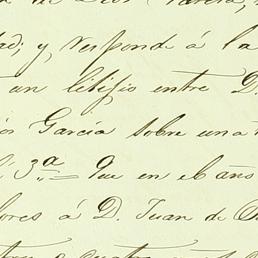 de Dios
dad; y responde á la
un litigio entre D.
García sobre una
3.ª Que en el año
lores á D. Juan de